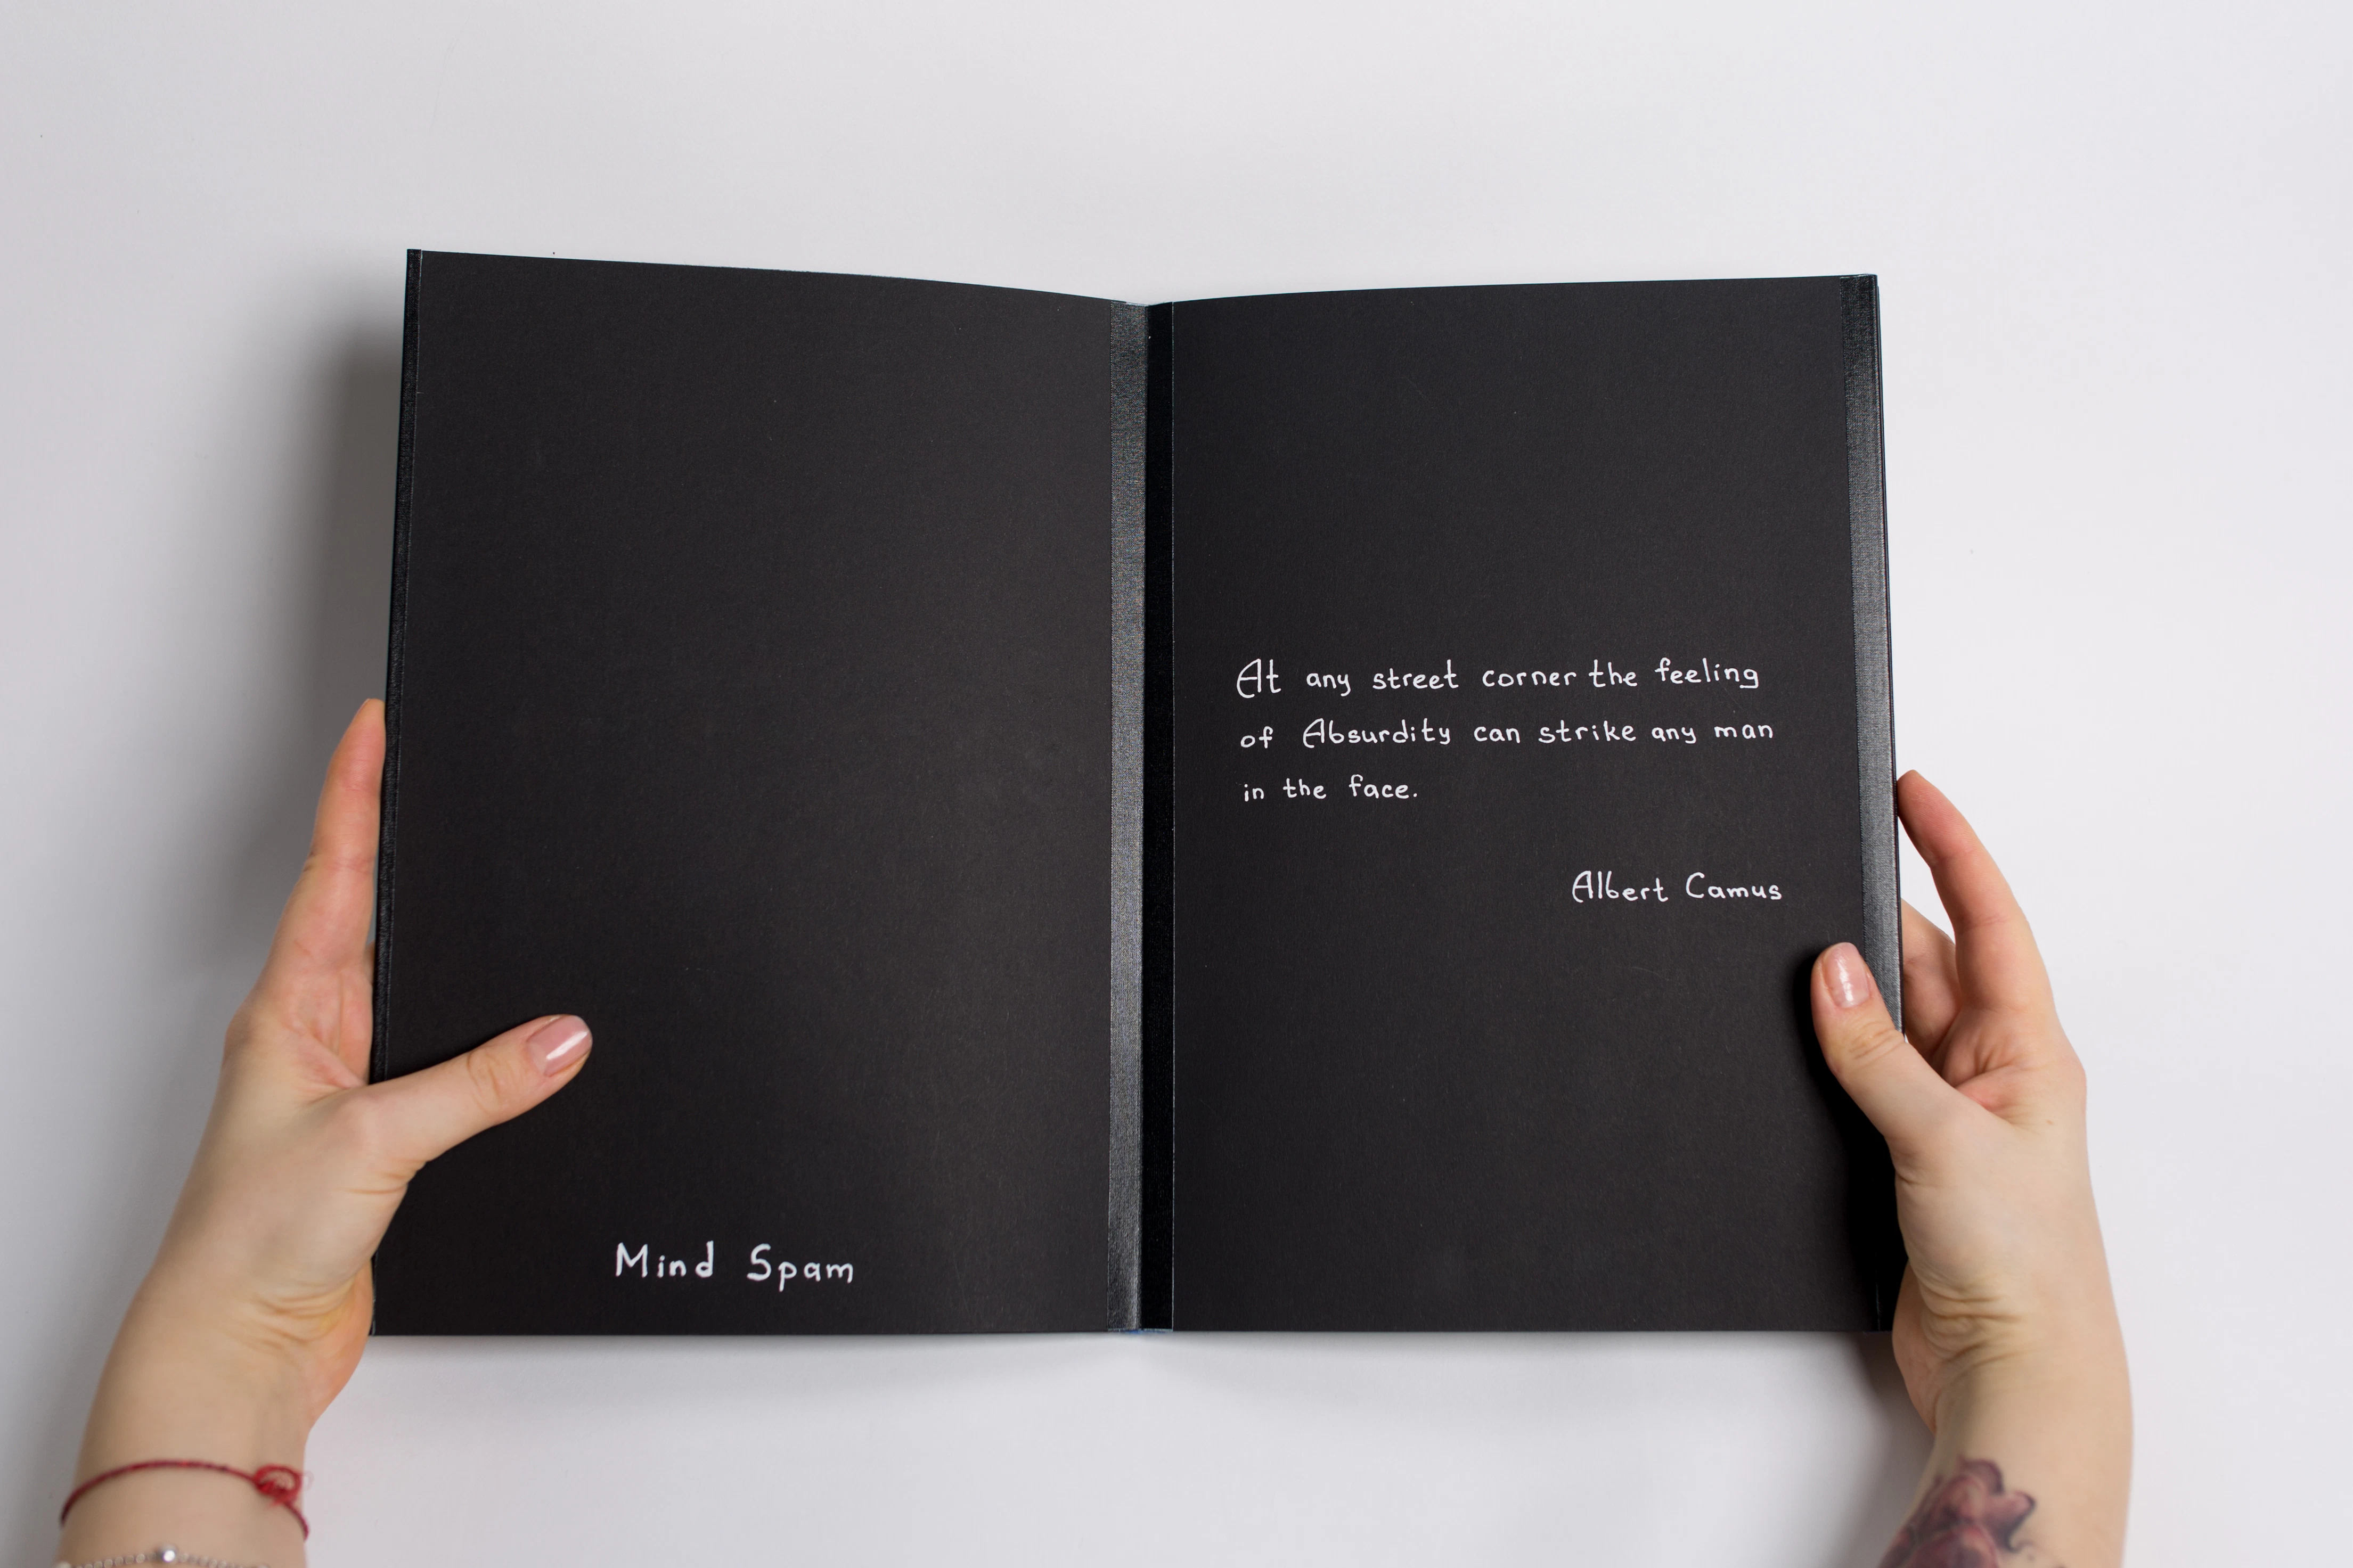 Mind Spam
At any street corner the feeling
of Absurdity can strike any man
in the face.
Albert Camus